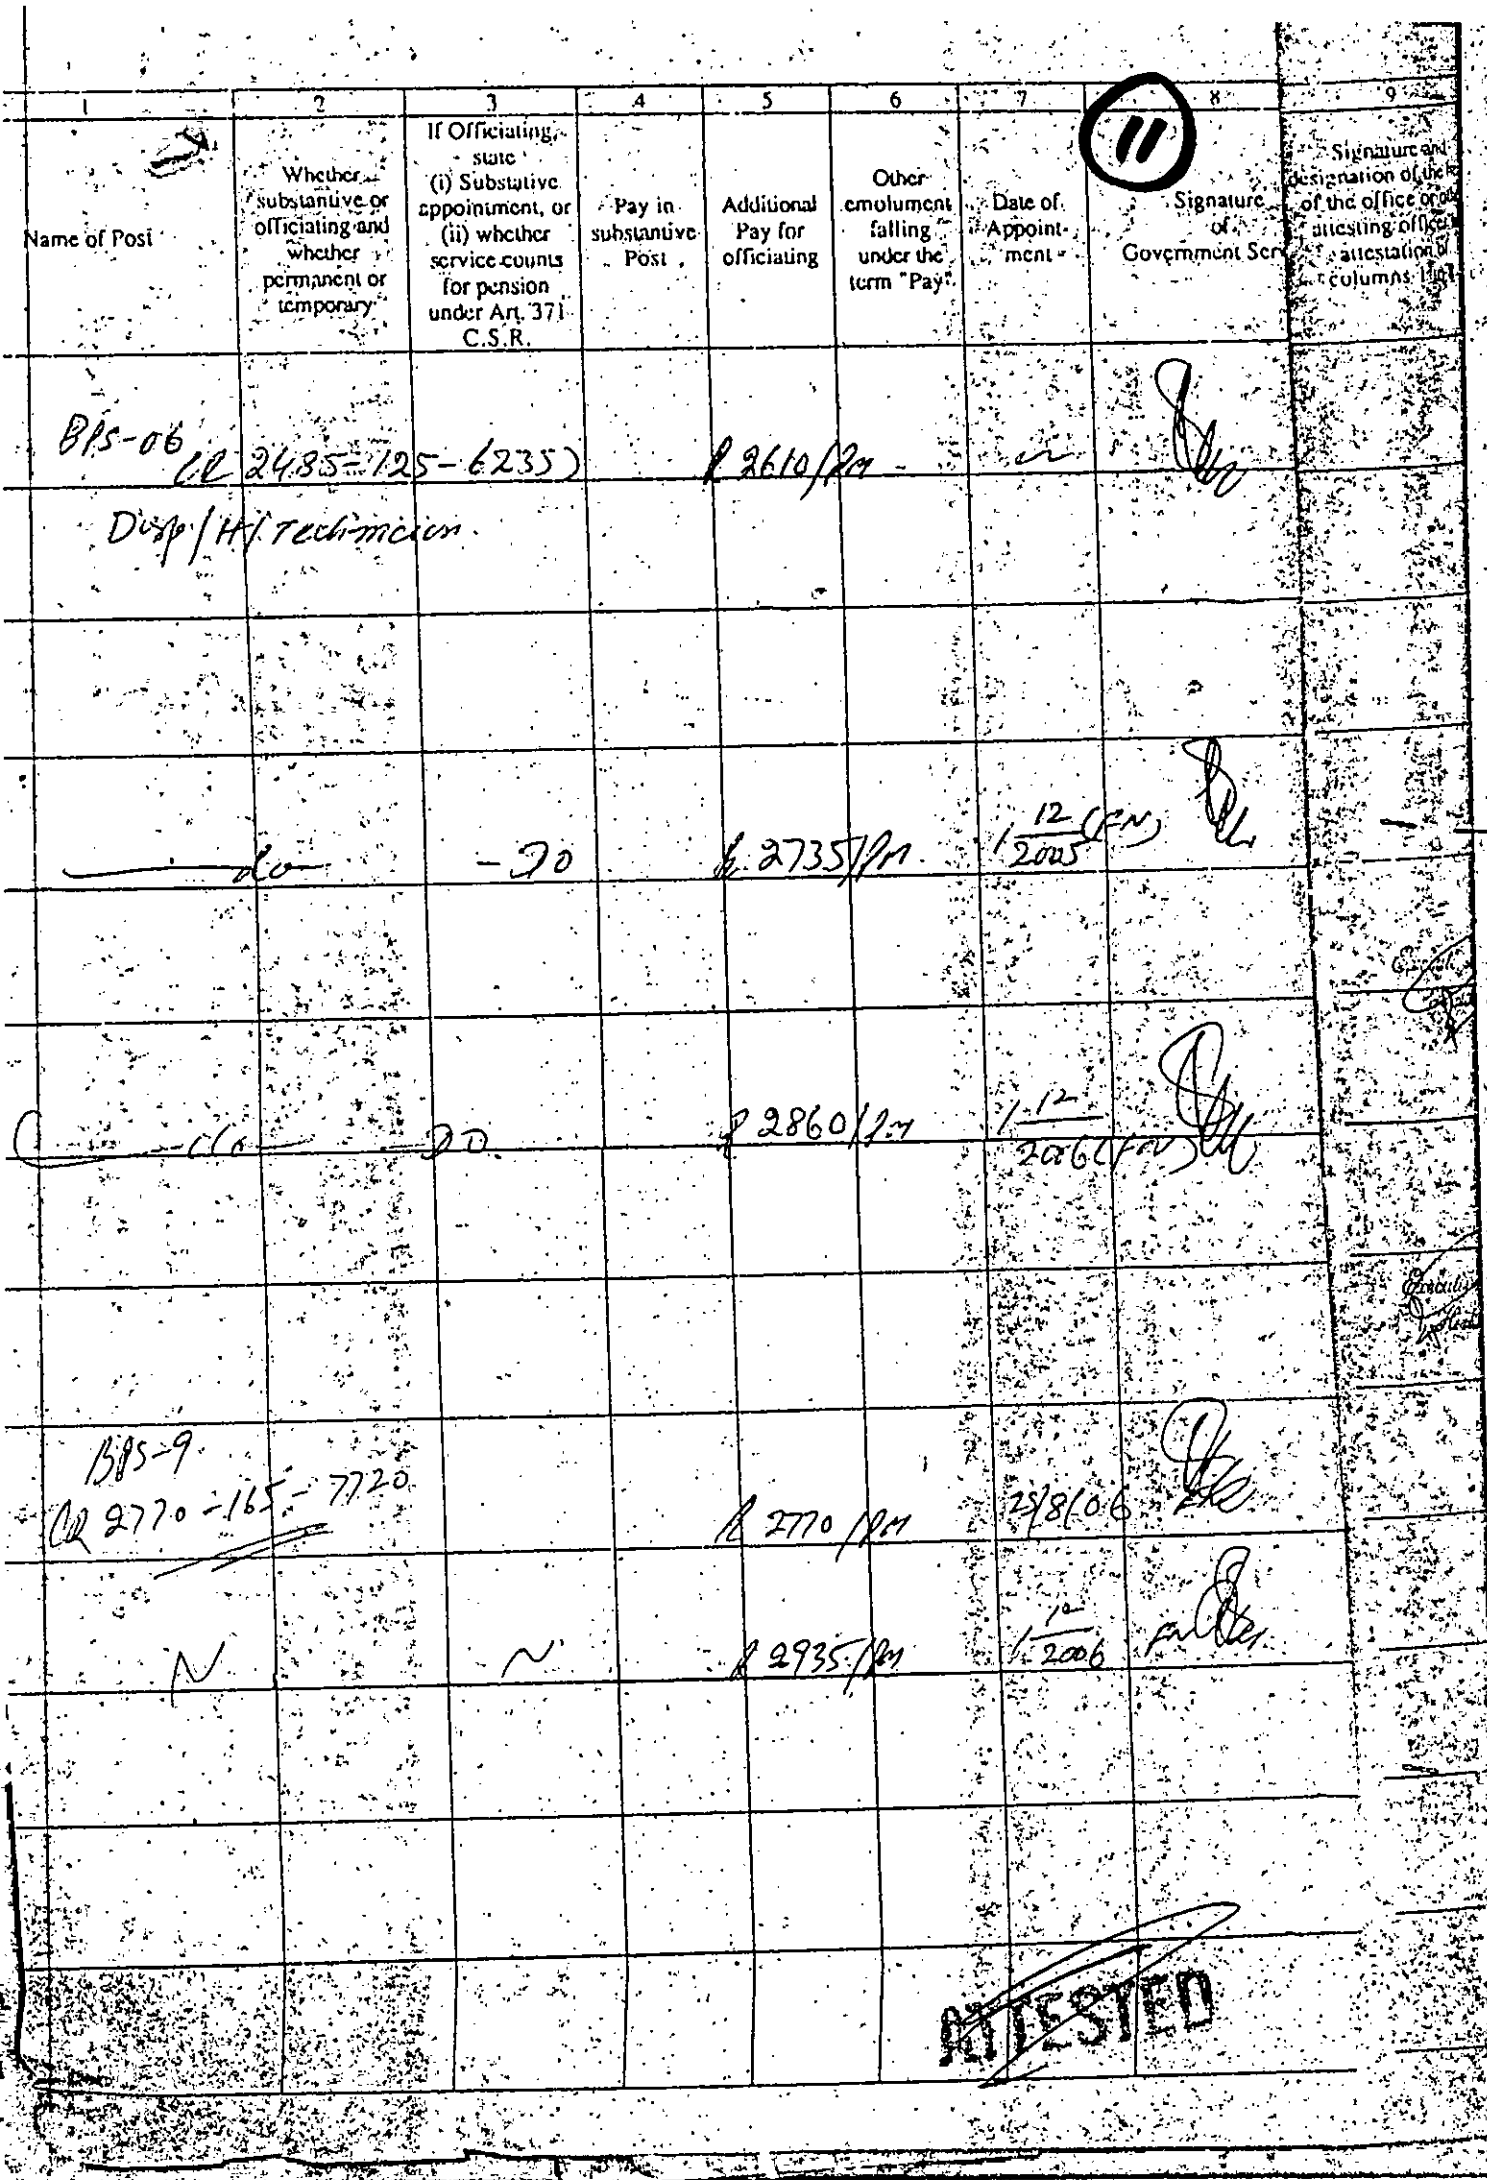 1 2 3 4 5 6 7 8 9
11
Name of Post
Whether
substantive or
officiating and
whether
permanent or
temporary
If Officiating,
state
(i) Substative
appointment, or
(ii) whether
service counts
for pension
under Art. 371
C.S.R.
Pay in
substantive
Post
Additional
Pay for
officiating
Other
emolument
falling
under the
term "Pay"
Date of
Appoint-
ment
Signature
of
Government Ser
Signature and
designation of the
of the office or
attesting office
attestation of
columns 1
BPS-06
(R 2485-125-6235) R 2610/PM
Disp/H/Technician
do - DO R. 2735/PM 1 12/2005 (FN)
do DO R 2860/PM 1 12/2006 (FN)
BPS-9
(R 2770-165-7720 R 2770/PM 25/8/06
R 2935/PM 1 12/2006 FN
ATTESTED